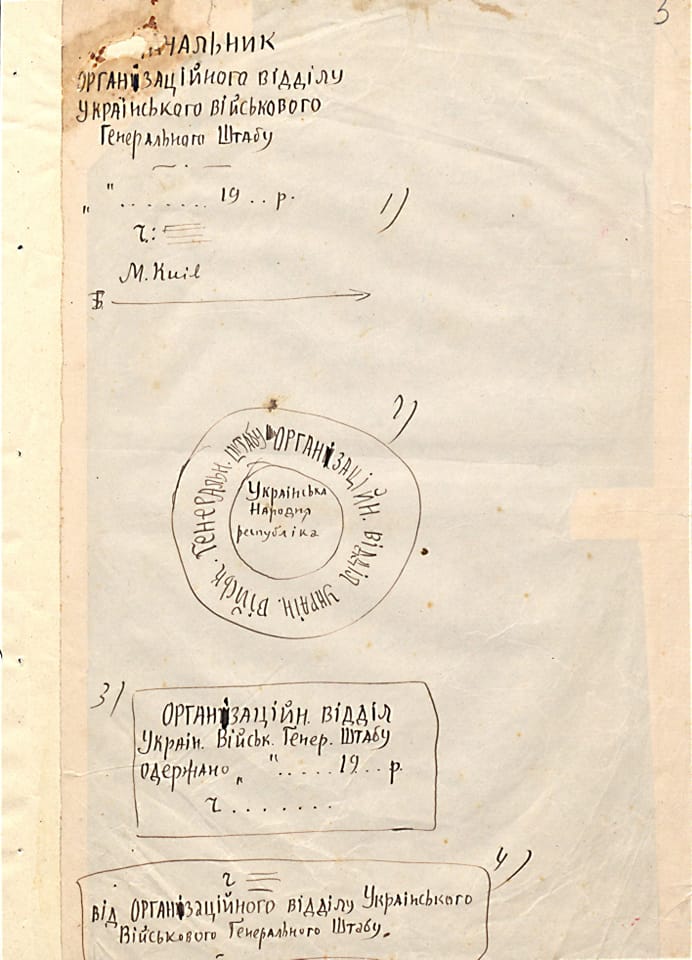 3
НАЧАЛЬНИК
ОРГАНІЗАЦІЙНОГО ВІДДІЛУ
УКРАЇНСЬКОГО ВІЙСЬКОВОГО
ГЕНЕРАЛЬНОГО ШТАБУ
„ " ....... 19 .. р.
1)
Ч.:
М. Київ
2)
ОРГАНІЗАЦІЙН. ВІДДІЛ УКРАЇН. ВІЙСЬК. ГЕНЕРАЛЬН. ШТАБУ
Українська
Народня
республіка
3)
ОРГАНІЗАЦІЙН. ВІДДІЛ
УКРАЇН. ВІЙСЬК. ГЕНЕР. ШТАБУ
ОДЕРЖАНО „ " ..... 19 .. р.
Ч .......
4)
Ч
від ОРГАНІЗАЦІЙНОГО ВІДДІЛУ УКРАЇНСЬКОГО
ВІЙСЬКОВОГО ГЕНЕРАЛЬНОГО ШТАБУ.